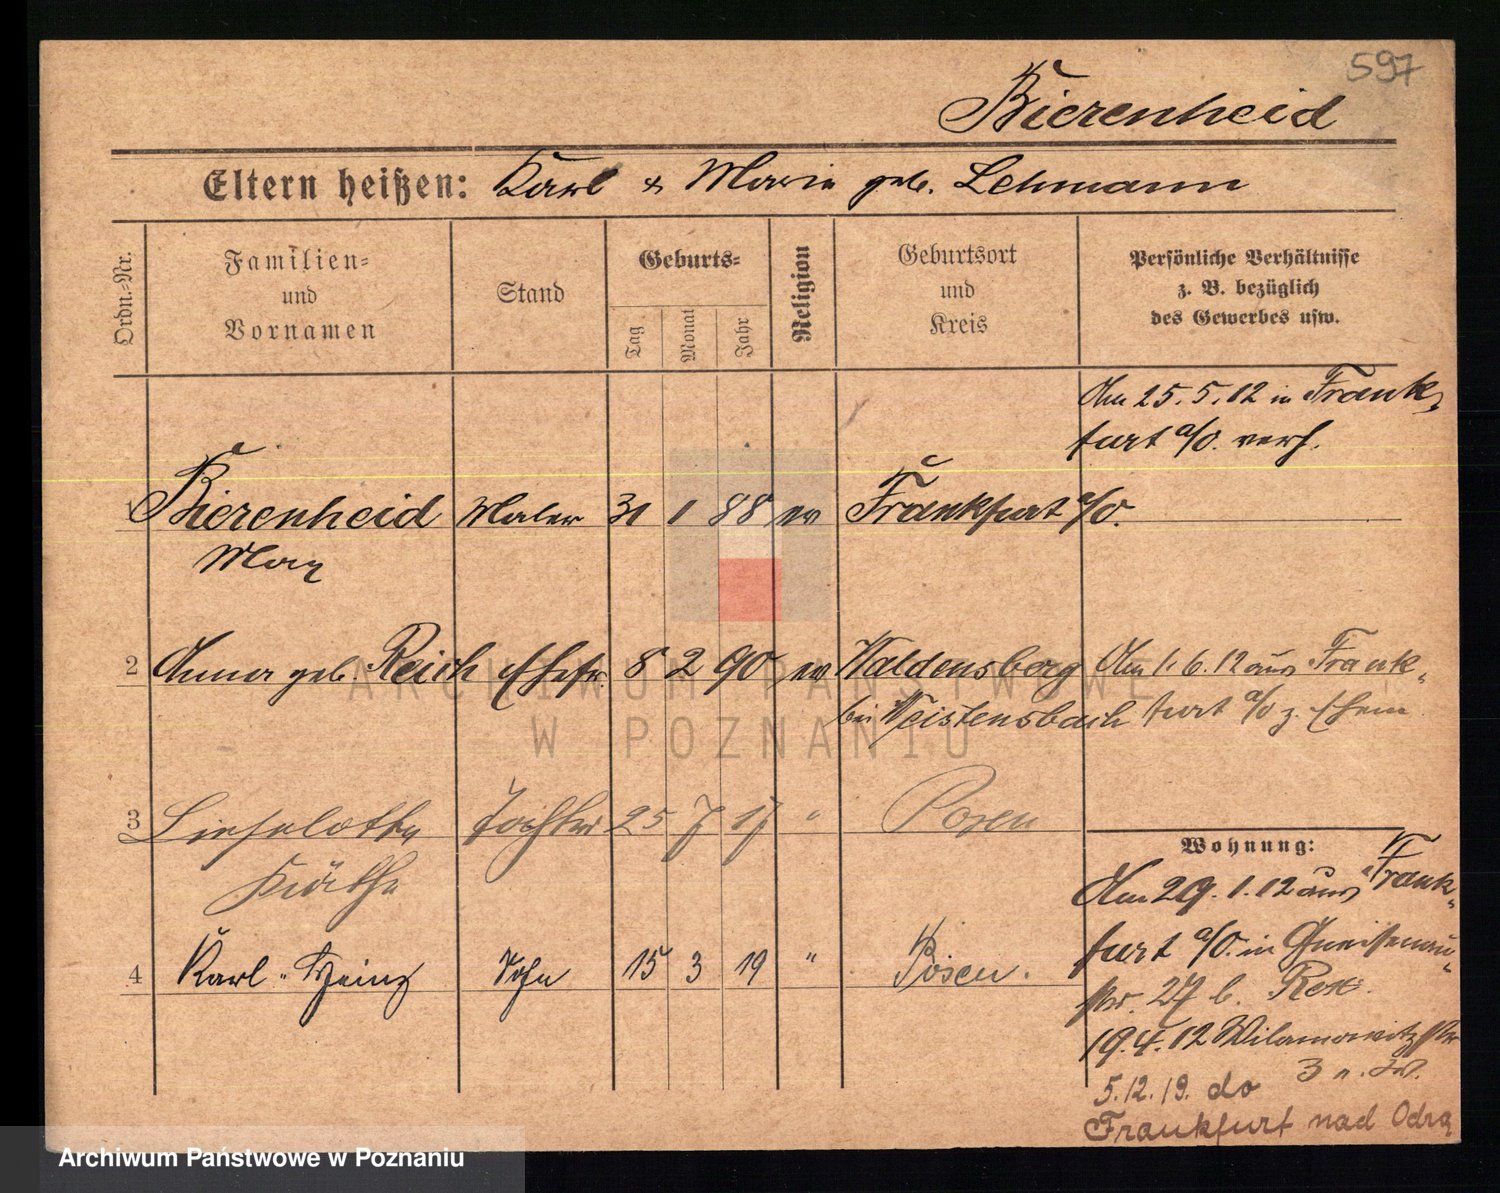 597
Bierenheid
Eltern heißen: Karl & Marie geb. Lehmann
Ordn.-Nr.
Familien-
und
Vornamen
Stand
Geburts-
Tag
Monat
Jahr
Religion
Geburtsort
und
Kreis
Persönliche Verhältnisse
z. B. bezüglich
des Gewerbes usw.
Am 25.5.12 in Frank-
furt a/O. verh.
1 Bierenheid Maler 31 1 88 ev Frankfurt a/O.
Max
2 Anna geb. Reich Ehefr. 8 2 90 ev Waldensberg Am 1.6.12 aus Frank-
bei furt a/O z. Ehem
3 Lieselotte Tochter 25 7 17 " Posen
Käthe
4 Karl-Heinz Sohn 15 3 19 " Posen.
Wohnung:
Am 29.1.12 aus Frank-
furt a/O. in Gneisenau-
str. 27 b.
19.4.12 Wilamowitzstr
3
5.12.19. do
Frankfurt nad Odrą
ARCHIWUM PAŃSTWOWE
W POZNANIU
Archiwum Państwowe w Poznaniu